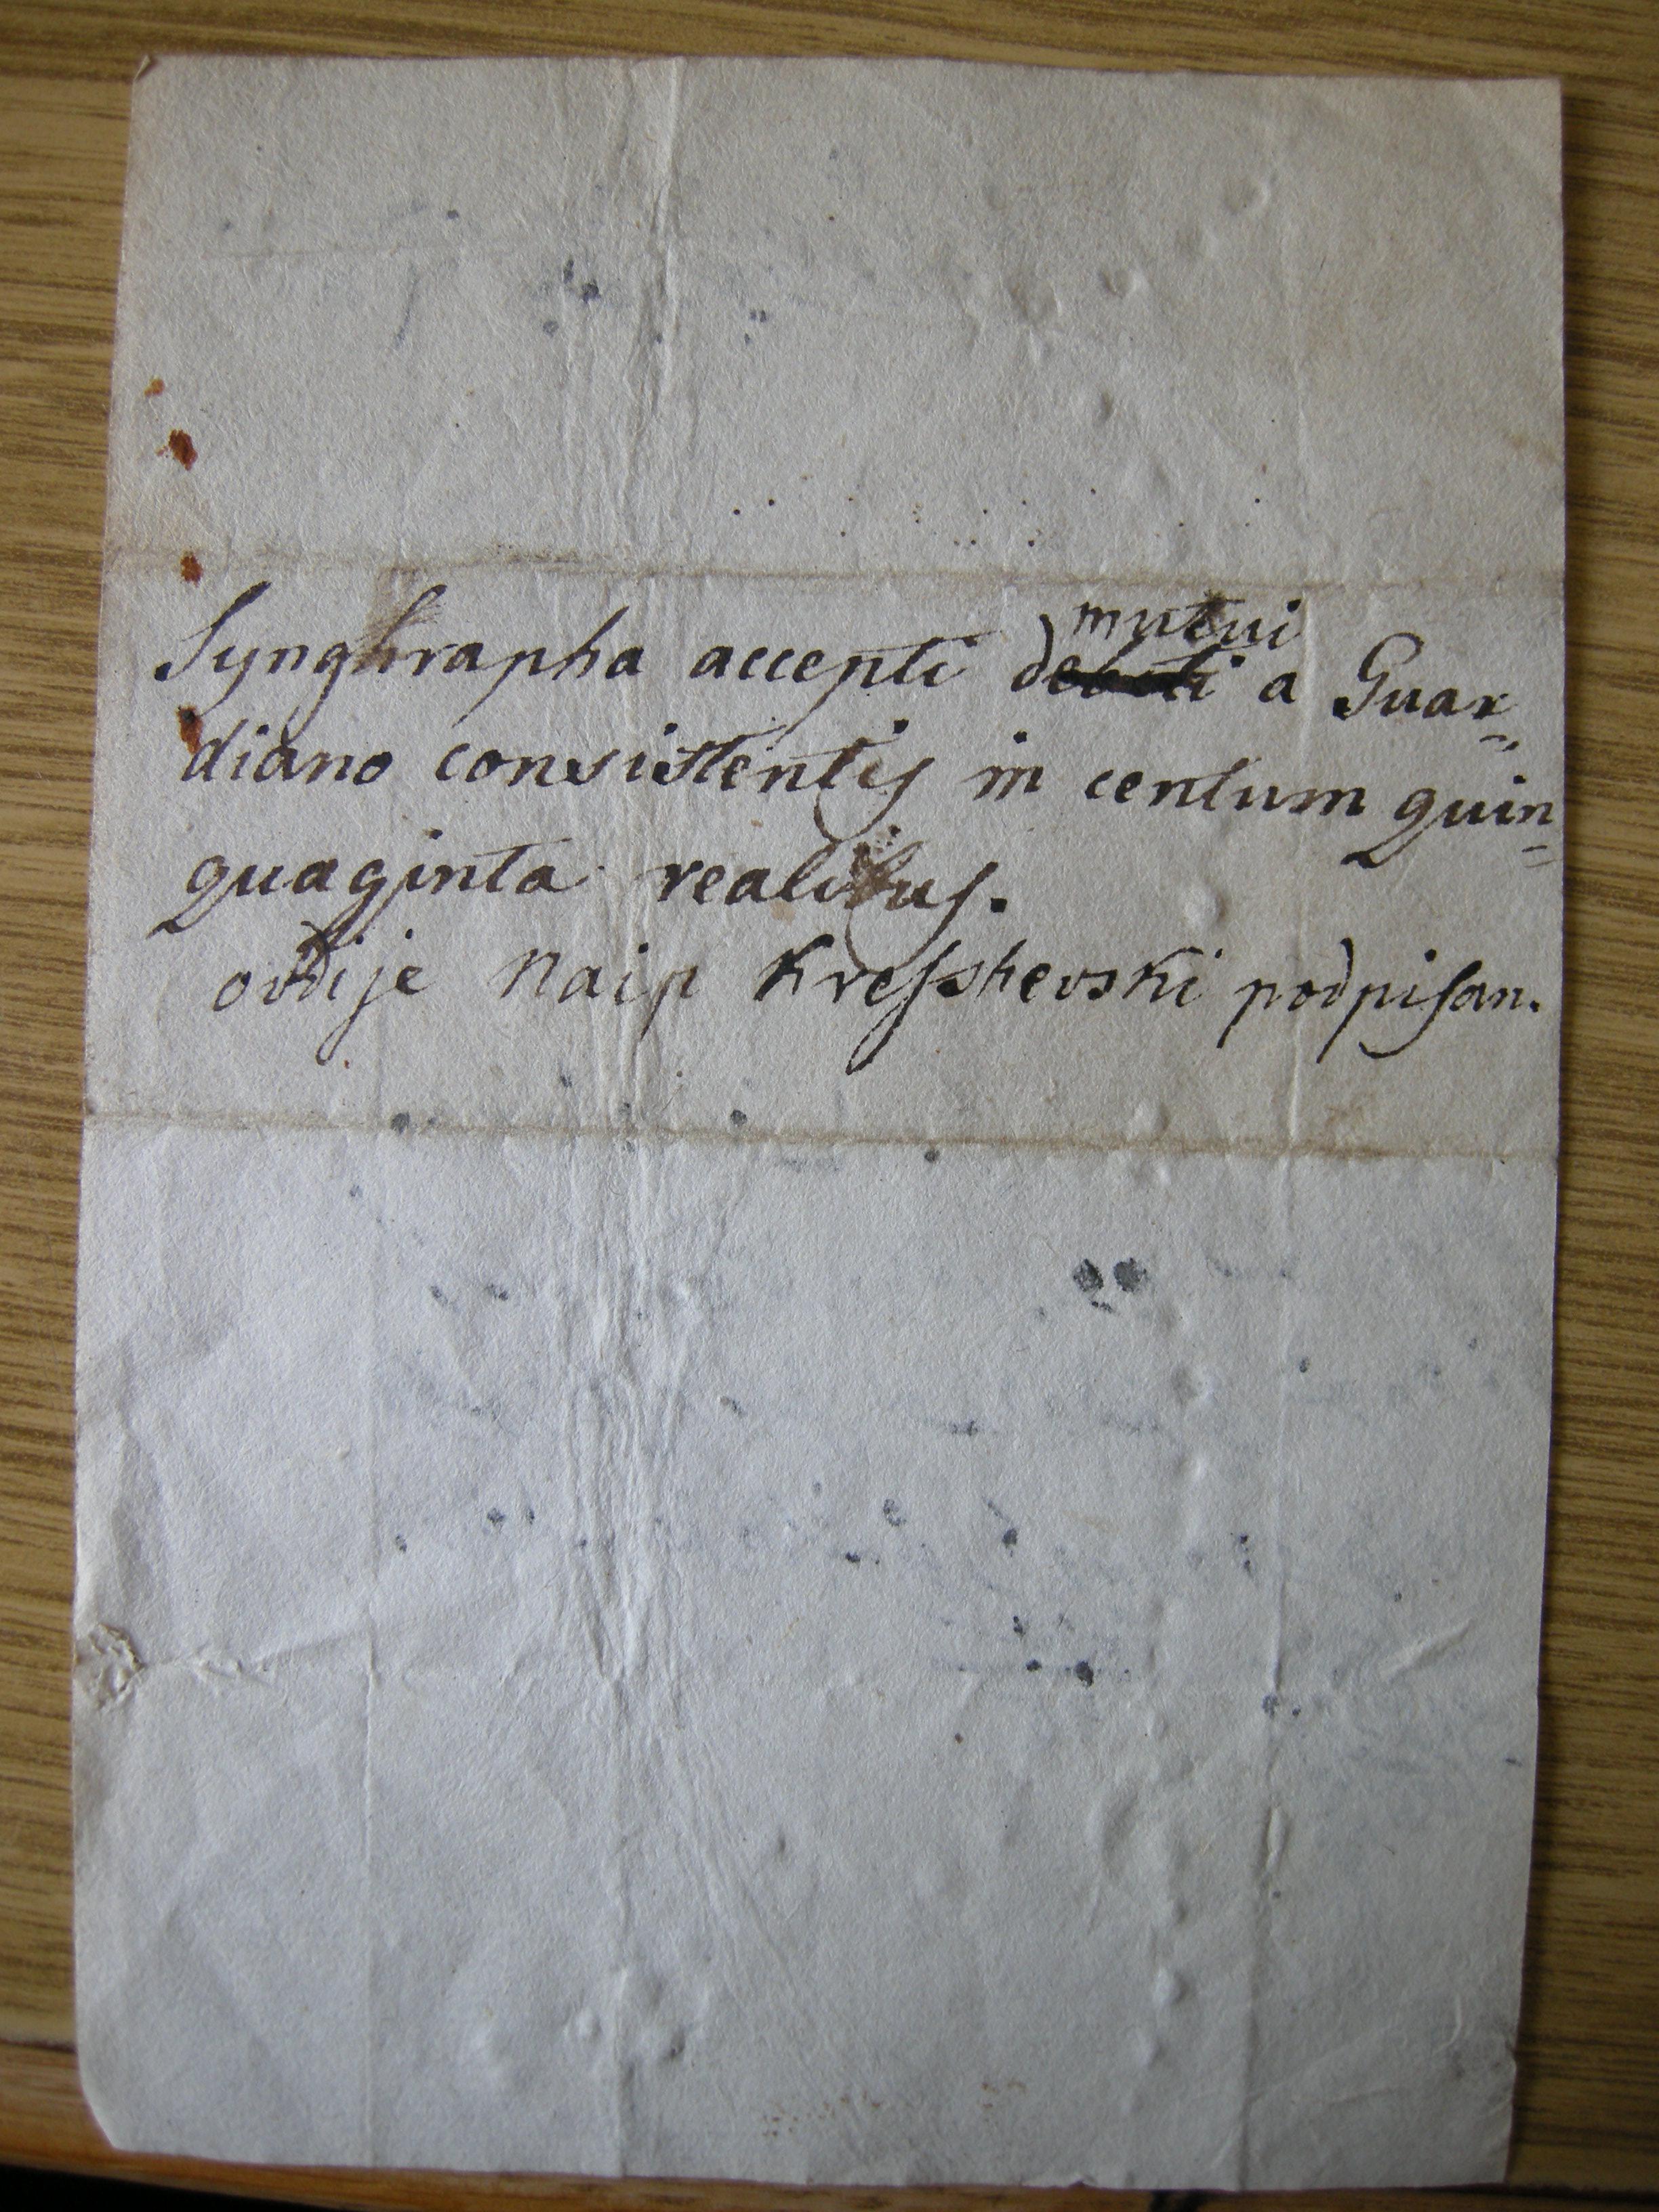 Synghrapha accepti mutui a Guar=
diano consistentis in centum quin=
quaginta realibus.
ovdi je Naip Kresshevski podpisan.